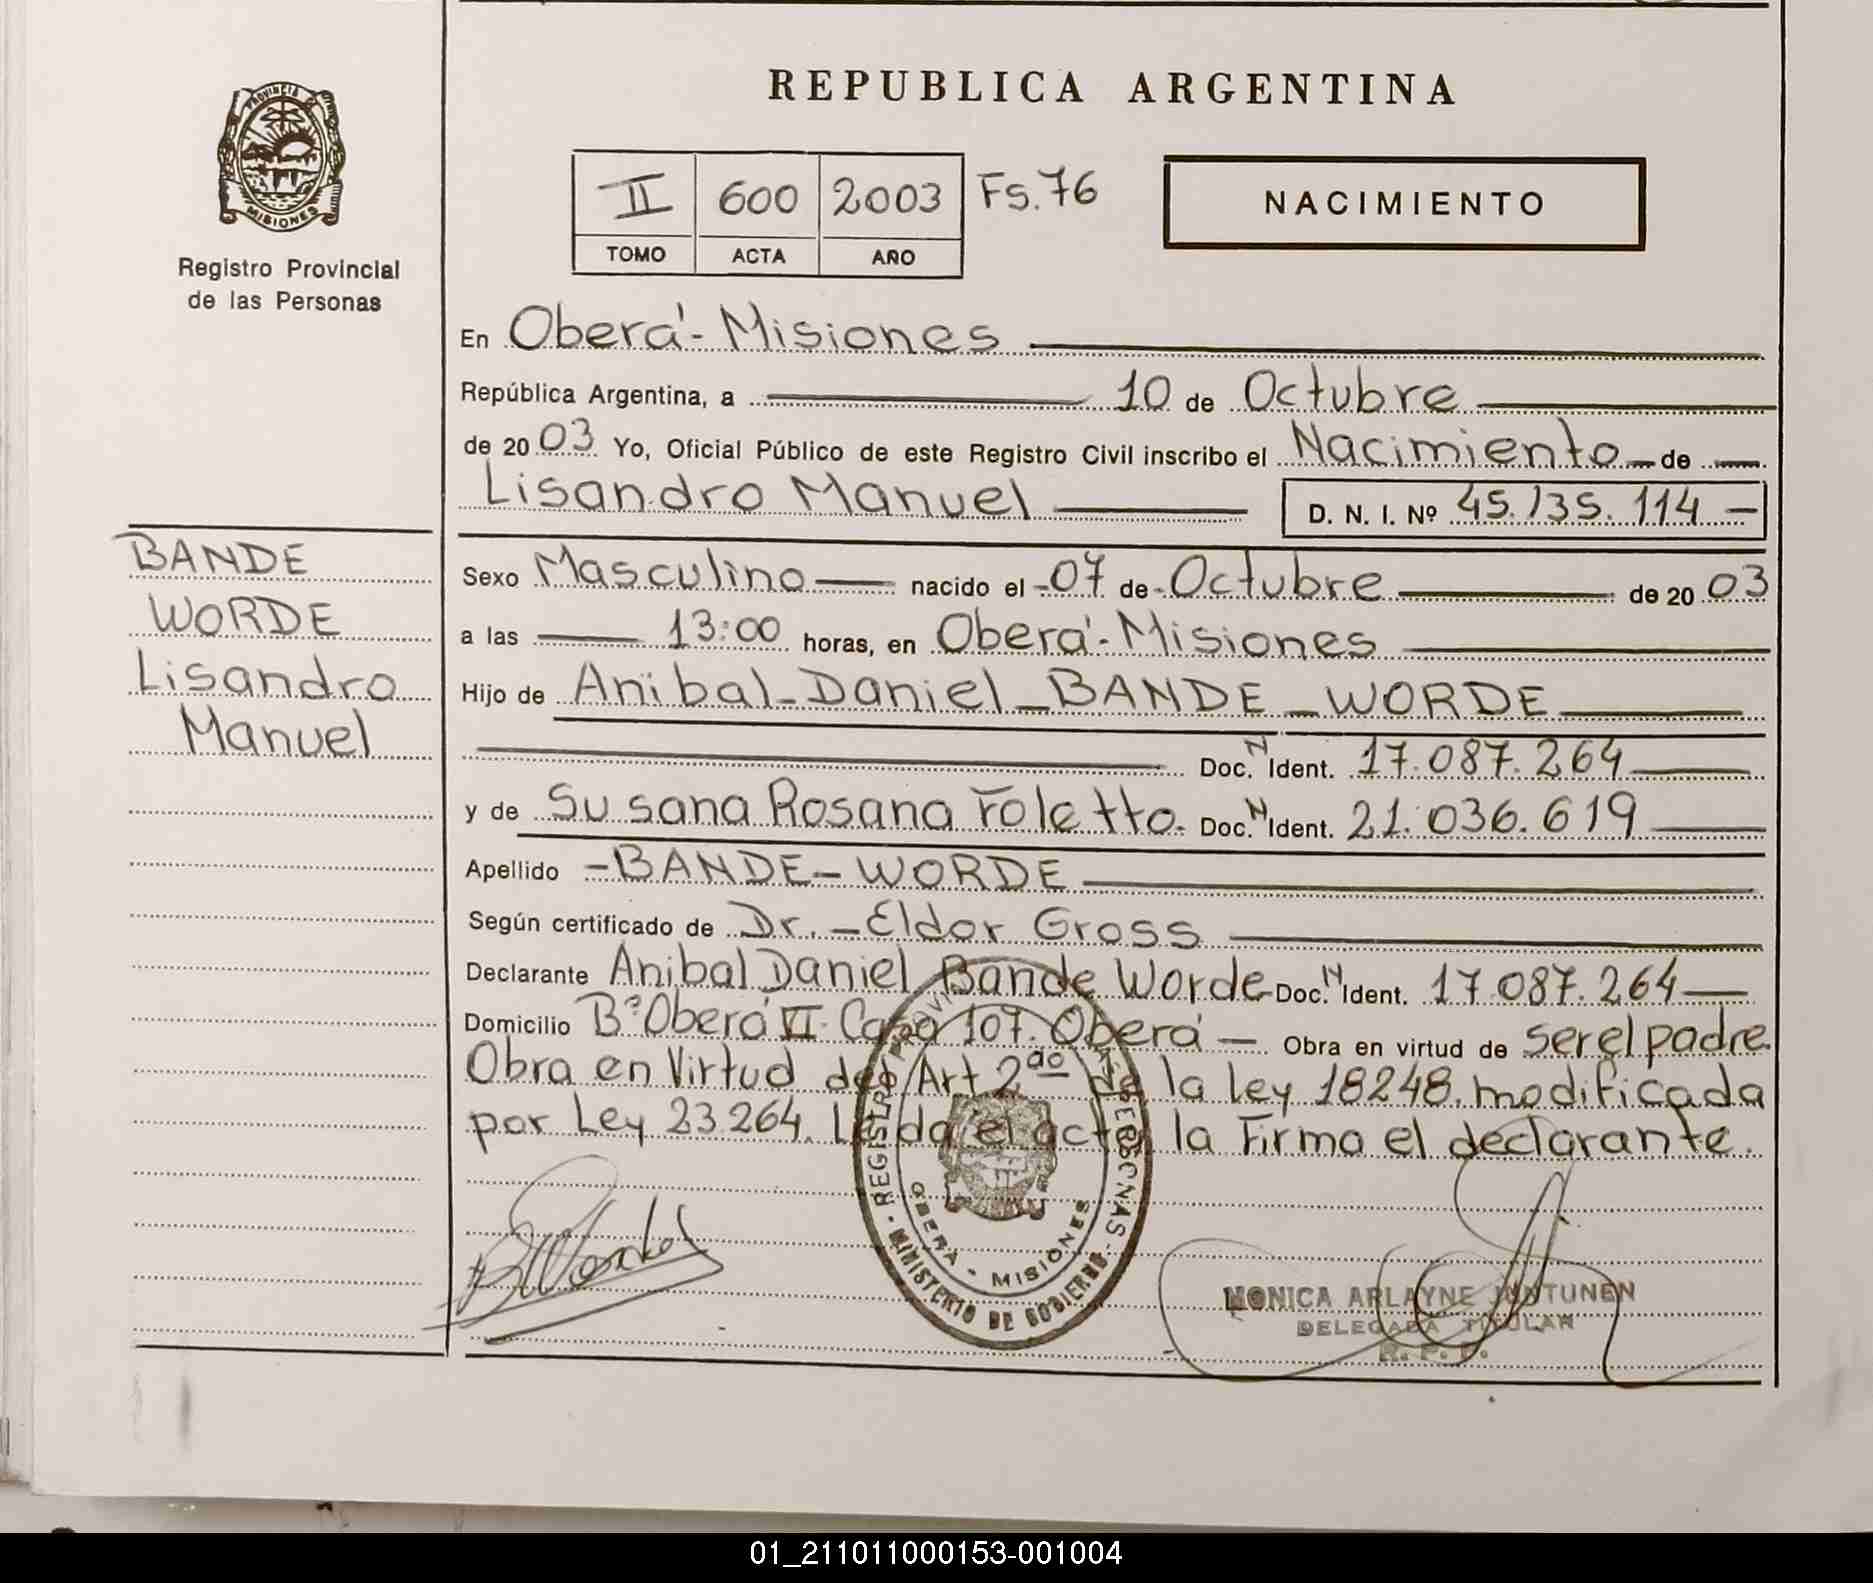 REPUBLICA ARGENTINA
PROVINCIA DE
MISIONES
Registro Provincial
de las Personas
II 600 2003 Fs. 76
TOMO ACTA AÑO
NACIMIENTO
En Oberá - Misiones
República Argentina, a 10 de Octubre
de 20 03 Yo, Oficial Público de este Registro Civil inscribo el Nacimiento de
Lisandro Manuel D. N. I. Nº 45.135.114 -
BANDE
WORDE
Lisandro
Manuel
Sexo Masculino nacido el - 07 de - Octubre de 20 03
a las 13:00 horas, en Oberá - Misiones
Hijo de Anibal - Daniel - BANDE - WORDE
Doc. N Ident. 17.087.264
y de Susana Rosana Foletto. Doc. N Ident. 21.036.619
Apellido - BANDE - WORDE
Según certificado de Dr. - Eldor Gross
Declarante Anibal Daniel Bande Worde Doc. N Ident. 17.087.264
Domicilio Bº Oberá VI Casa 107. Oberá - Obra en virtud de ser el padre
Obra en Virtud del Art 2do de la ley 18248. modificada
por Ley 23264. Leida el acta la Firma el declarante.
REGISTRO PROVINCIAL DE LAS PERSONAS - MINISTERIO DE GOBIERNO -
OBERA - MISIONES
MONICA ARLAYNE JUNTUNEN
DELEGADA TITULAR
R. P. P.
01_211011000153-001004